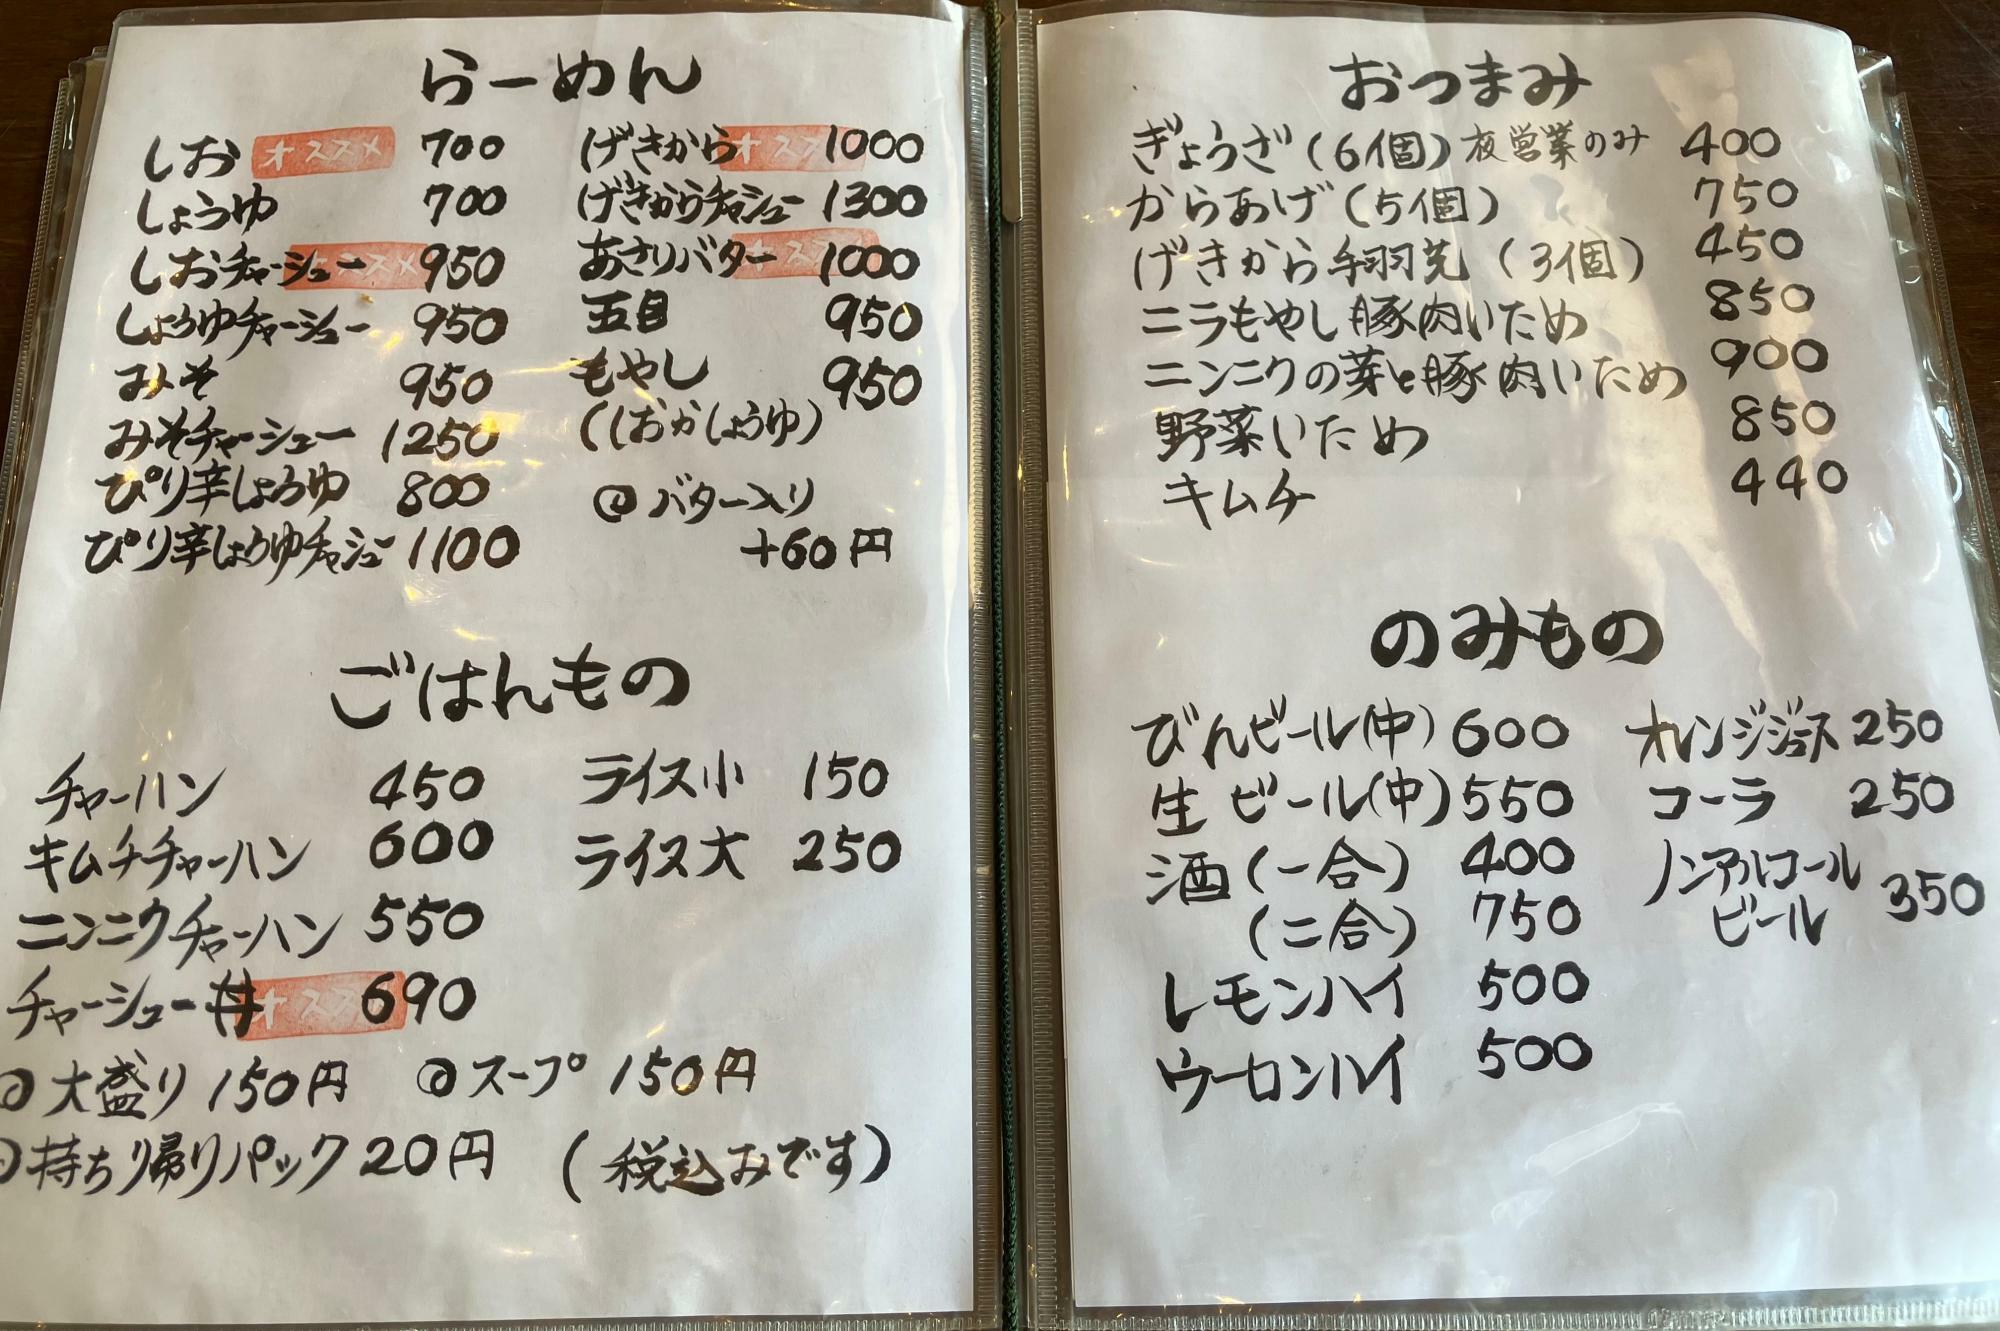 らーめん
しお オススメ 700
しょうゆ 700
しおチャーシュー オススメ 950
しょうゆチャーシュー 950
みそ 950
みそチャーシュー 1250
ぴり辛しょうゆ 800
ぴり辛しょうゆチャーシュー 1100
げきから オススメ 1000
げきからチャーシュー 1300
あさりバター オススメ 1000
五目 950
もやし 950
(しおかしょうゆ)
◎バター入り
+60円
ごはんもの
チャーハン 450
キムチチャーハン 600
ニンニクチャーハン 550
チャーシュー丼 オススメ 690
ライス小 150
ライス大 250
◎大盛り 150円 ◎スープ 150円
◎持ち帰りパック 20円 (税込みです)
おつまみ
ぎょうざ(6個)夜営業のみ 400
からあげ(5個) 750
げきから手羽先(3個) 450
ニラもやし豚肉いため 850
ニンニクの芽と豚肉いため 900
野菜いため 850
キムチ 440
のみもの
びんビール(中) 600
生ビール(中) 550
酒(一合) 400
(二合) 750
レモンハイ 500
ウーロンハイ 500
オレンジジュース 250
コーラ 250
ノンアルコール
ビール 350